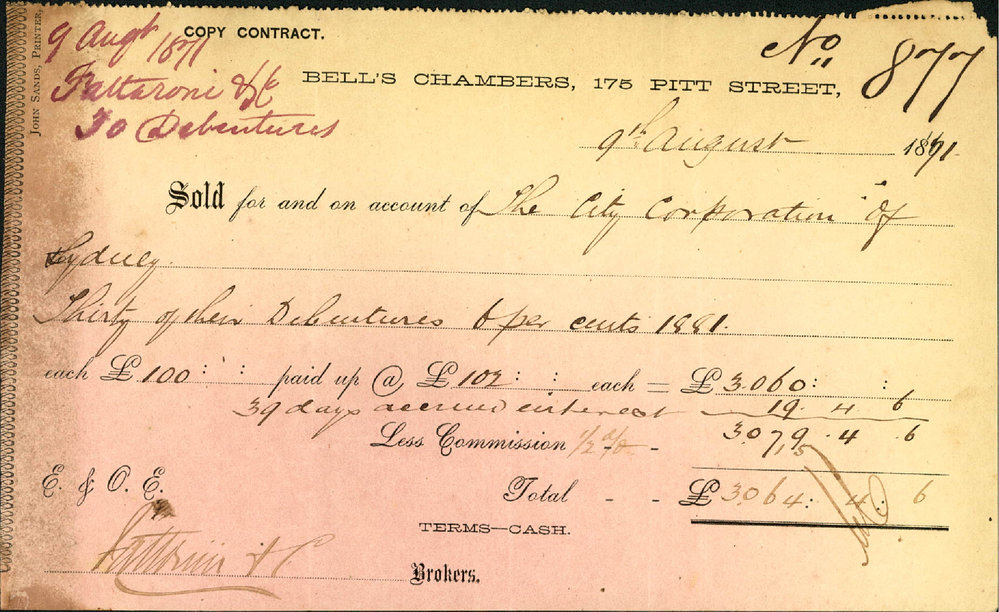 JOHN SANDS, PRINTER,
9 Augt 1871
COPY CONTRACT.
No. 877
Fattorini & Co
BELL'S CHAMBERS, 175 PITT STREET,
30 Debentures
9th August 1871.
Sold for and on account of The City Corporation of
Sydney
Thirty of their Debentures 6 per cents 1881.
each £ 100 : : paid up @ £ 102 : : each = £ 3.060 : :
39 days accrued interest 19 . 4 . 6
Less Commission 1/2 % - - 3079 . 4 . 6
15
E. & O. E. Total - - £ 3064 : 4 : 6
TERMS—CASH.
Fattorini & Co Brokers.